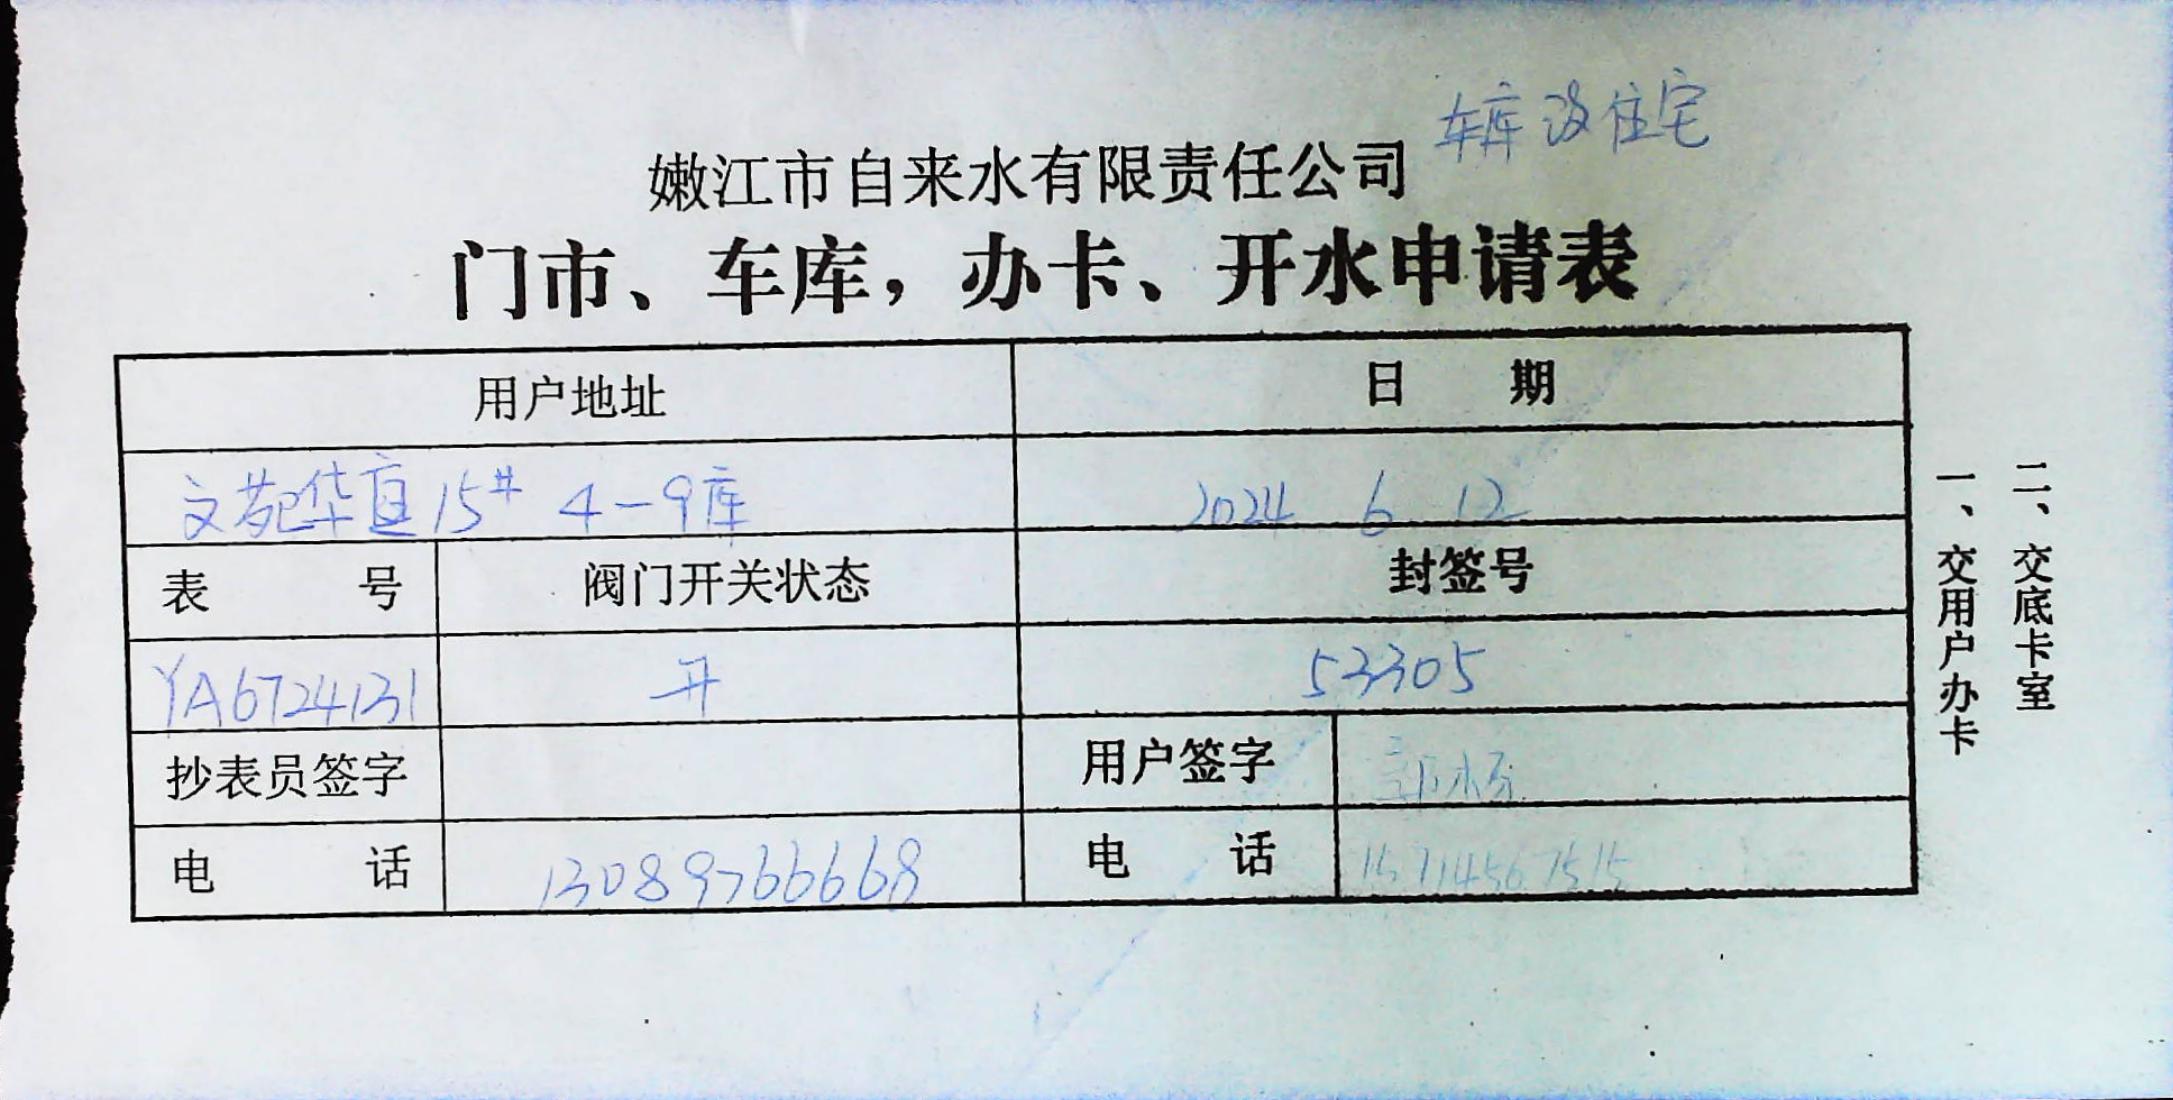 车库改住宅
嫩江市自来水有限责任公司
门市、车库，办卡、开水申请表
用户地址 日 期
文苑华庭15# 4-9库 2024 6 12
表 号 阀门开关状态 封签号
YA6724131 开 53305
抄表员签字 用户签字
电 话 13089766668 电 话 15714567515
一、交用户办卡
二、交底卡室